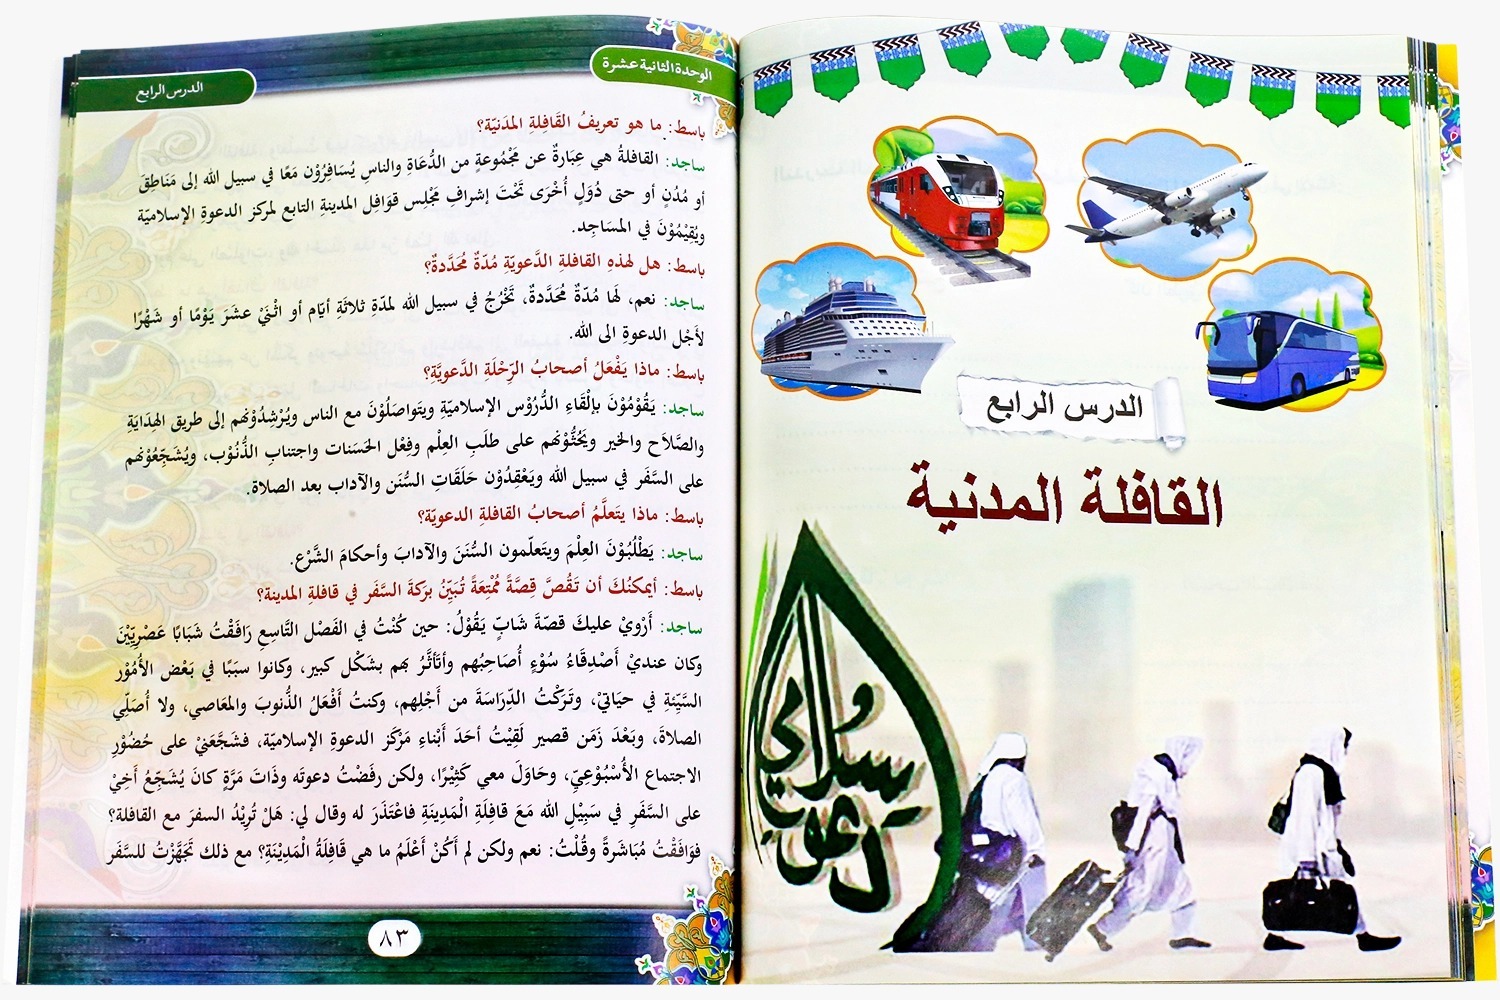 الدرس الرابع
القافلة المدنية
دعوت اسلامی
الوحدة الثانية عشرة
الدرس الرابع
باسط: ما هو تعريفُ القَافِلةِ المدَنيّة؟
ساجد: القافلةُ هي عِبَارةٌ عن مَجْمُوعةٍ من الدُّعَاةِ والناسِ يُسَافِرُوْن مَعًا في سبيل الله إلى مَنَاطِقَ
أو مُدُنٍ أو حتى دُوَلٍ أُخْرَى تَحْتَ إشرافِ مَجْلِس قوَافِل المدينةِ التابع لمركز الدعوةِ الإسلاميّة
ويُقِيْمُوْنَ في المسَاجِد.
باسط: هل لهذهِ القافلةِ الدَّعويّةِ مُدّةٌ مُحَدَّدةٌ؟
ساجد: نعم، لَهَا مُدّةٌ مُحَدَّدةٌ، تَخْرُجُ في سبيل الله لمدّةِ ثلاثَةِ أيّام أو اثْنَيْ عشَرَ يَوْمًا أو شَهْرًا
لأَجْل الدعوةِ الى الله.
باسط: ماذا يَفْعَلُ أصحابُ الرِّحْلَةِ الدَّعويَّةِ؟
ساجد: يَقُوْمُوْنَ بإلْقَاءِ الدُّرُوْس الإسلاميّةِ ويتَواصَلُوْنَ مع الناس ويُرْشِدُوْنهم إلى طريق الهِدَايَةِ
والصَّلاَح والخير ويَحُثُّوْنهم على طلَبِ العِلْم وفِعْل الحَسَنات واجتنابِ الذُّنُوْب، ويُشَجِّعُوْنهم
على السَّفَر في سبيل الله ويَعْقِدُوْن حَلَقَاتِ السُّنَن والآداب بعد الصلاة.
باسط: ماذا يتَعلَّمُ أصحابُ القافلةِ الدعويّة؟
ساجد: يَطْلُبُوْنَ العِلْمَ ويتَعلّمون السُّنَنَ والآدابَ وأحكامَ الشَّرْع.
باسط: أيمكنُكَ أن تَقُصَّ قِصَّةً مُمْتِعَةً تُبَيِّنُ برَكَةَ السَّفَر في قافلةِ المدينة؟
ساجد: أَرْوِيْ عليكَ قصّةَ شَابٍّ يَقُوْلُ: حين كُنْتُ في الفَصْل التَّاسِع رَافَقْتُ شَبَابًا عَصْرِيِّيْنَ
وكان عنديْ أَصْدِقَاءُ سُوْءٍ أُصَاحِبُهم وأتَأثَّرُ بهم بشَكْل كبير، وكانوا سبَبًا في بَعْض الأُمُوْر
السَّيِّئةِ في حيَاتيْ، وتَرَكْتُ الدِّرَاسَةَ من أَجْلِهم، وكنتُ أَفْعَلُ الذُّنوبَ والمعَاصي، ولا أُصَلِّي
الصلاةَ، وبَعْدَ زَمَن قصير لَقِيْتُ أحَدَ أَبْناءِ مَرْكَز الدعوةِ الإسلاميّة، فشَجَّعَنيْ على حُضُوْرِ
الاجتماع الأُسْبُوْعِيّ، وحَاوَلَ معي كَثِيْرًا، ولكن رفَضْتُ دعوتَه وذَاتَ مَرَّةٍ كانَ يُشَجِّعُ أَخِيْ
على السَّفَرِ في سَبِيْلِ الله مَعَ قافلَةِ الْمَدِيْنَةِ فاعْتَذَرَ له وقال لي: هَلْ تُرِيْدُ السفرَ مع القافلة؟
فوَافَقْتُ مُبَاشَرةً وقُلْتُ: نعم ولكن لم أَكُنْ أَعْلَمُ ما هي قَافِلَةُ الْمَدِيْنَةِ؟ مع ذلك تَجَهَّزْتُ للسَّفَر
٨٣